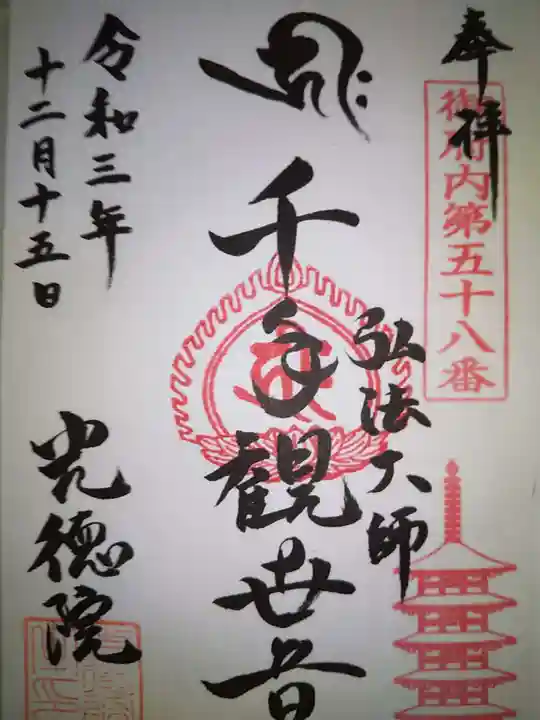 奉拝
御府内第五十八番
弘法大師
千手観世音
令和三年
十二月十五日
光徳院